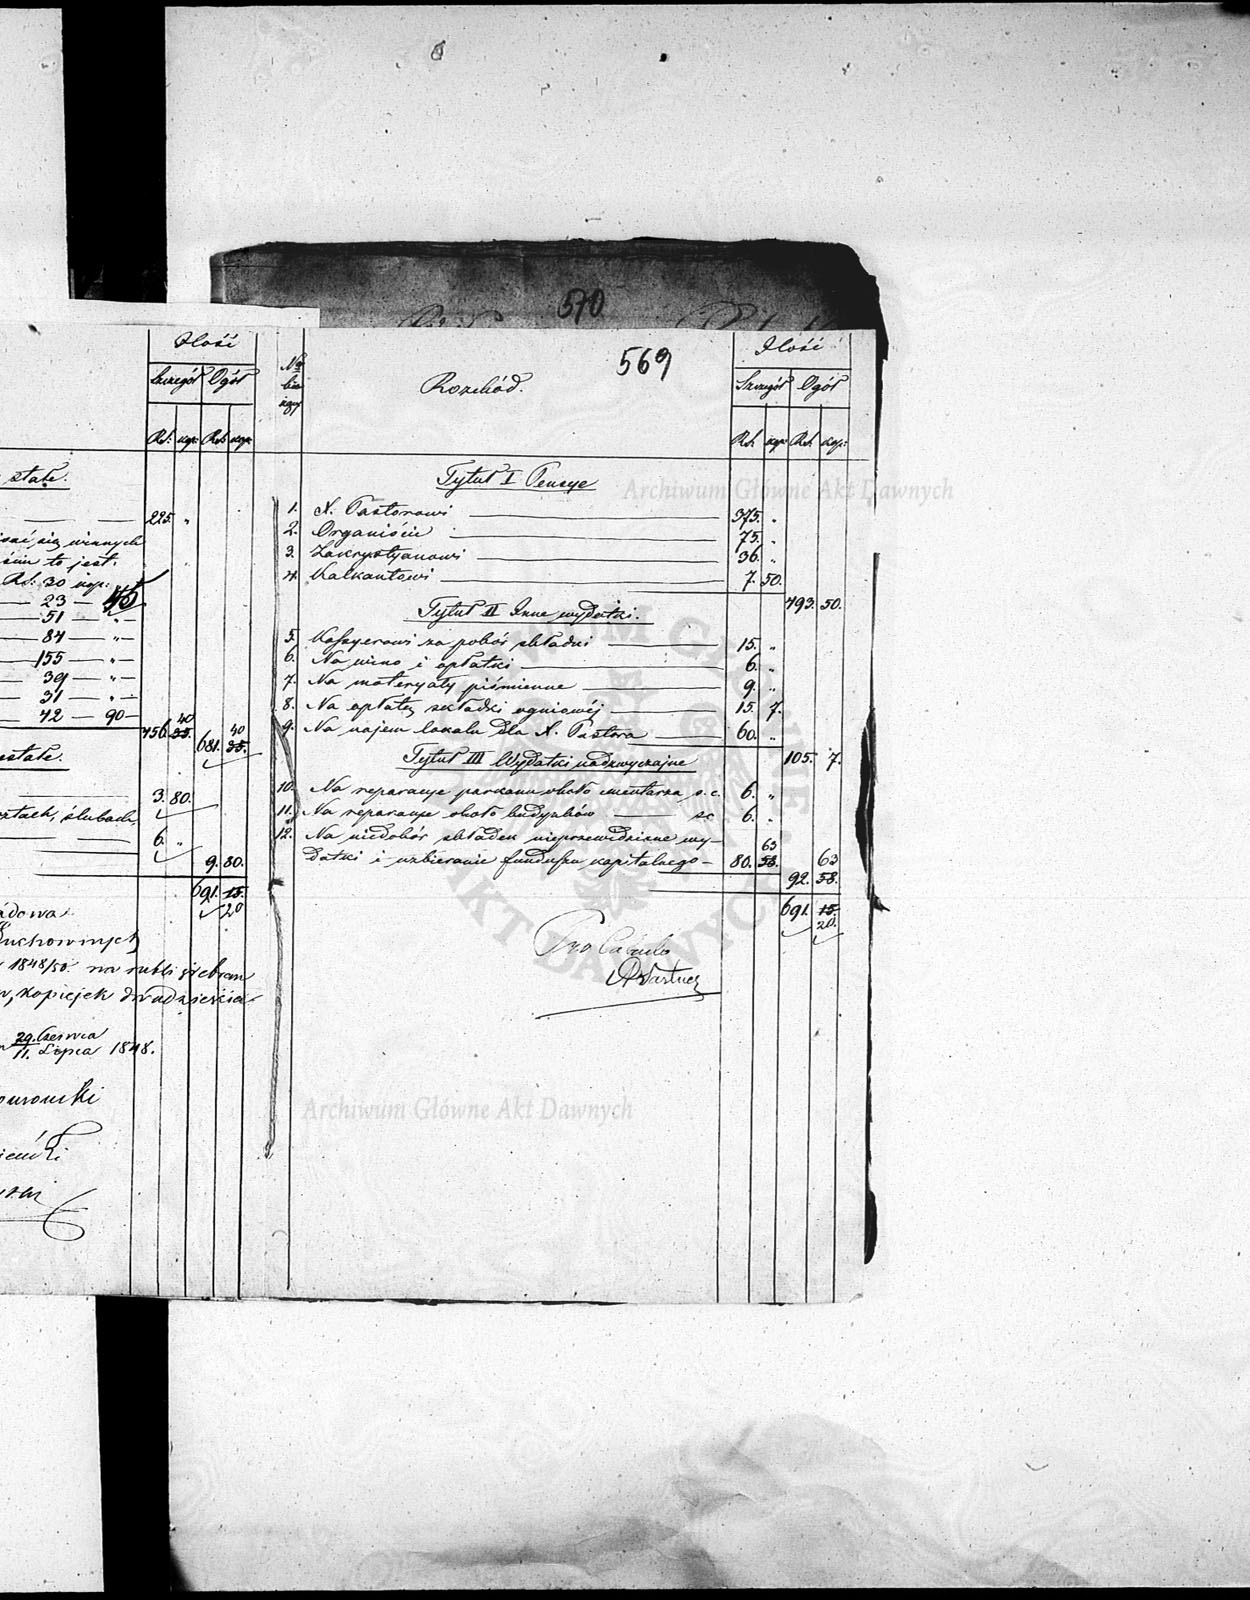 570
569
Ilość
Szczegół Ogół
Rs. kop. Rs. kop.
stałe.
225. „
winnych
to jest.
Rs: 30 kop:
23 — 45
51 — „ —
84 — „ —
155 — „ —
39 — „ —
31 — „ —
42 — 90 —
456. 35. 40
681. 35. 40
3. 80.
ślubach,
6. „
9. 80.
691. 15. 20
Suchowinych
1848/50. na rubli srebrem
kopiejek dwadzieścia
29. Czerwca
11. Lipca 1848.
No
bie
żący
Rozchód.
Ilość
Szczegół Ogół
Rs. kop. Rs. kop:
Tytuł I Pensye
1. X. Pastorowi — 375. „
2. Organiście — 75. „
3. Zakrystyanowi — 36. „
4. Kalkantowi — 7. 50.
493. 50.
Tytuł II Inne wydatki.
5. Kassyerowi za pobór składki — 15. „
6. Na wino i opłatki — 6. „
7. Na materyały piśmienne — 9. „
8. Na opłatę składki ogniowéj — 15. 7.
9. Na najem lokalu dla X. Pastora — 60. „
105. 7.
Tytuł III Wydatki nadzwyczajne
10. Na reparacye parkanu około cmentarza s.c. 6. „
11. Na reparacye około budynków — sc 6. „
12. Na niedobór składek nieprzewidziane wy-
datki i uzbieranie funduszu kapitalnego — 80. 58. 63
92. 58. 63
691. 15. 20.
Pro Calculo
Archiwum Główne Akt Dawnych
Archiwum Główne Akt Dawnych
ARCHIWUM GŁÓWNE AKT DAWNYCH